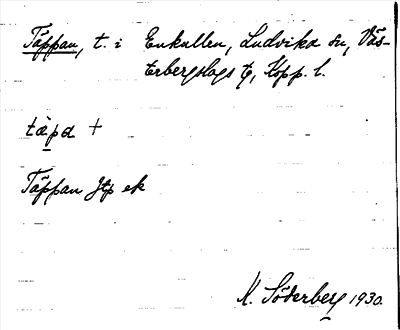 Täppan, t. i Enkullen, Ludvika sn, Väs-
terbergslags tg, Kopp. l.
täpa +
Täppan Jtp ek
K. Söderberg 1930.